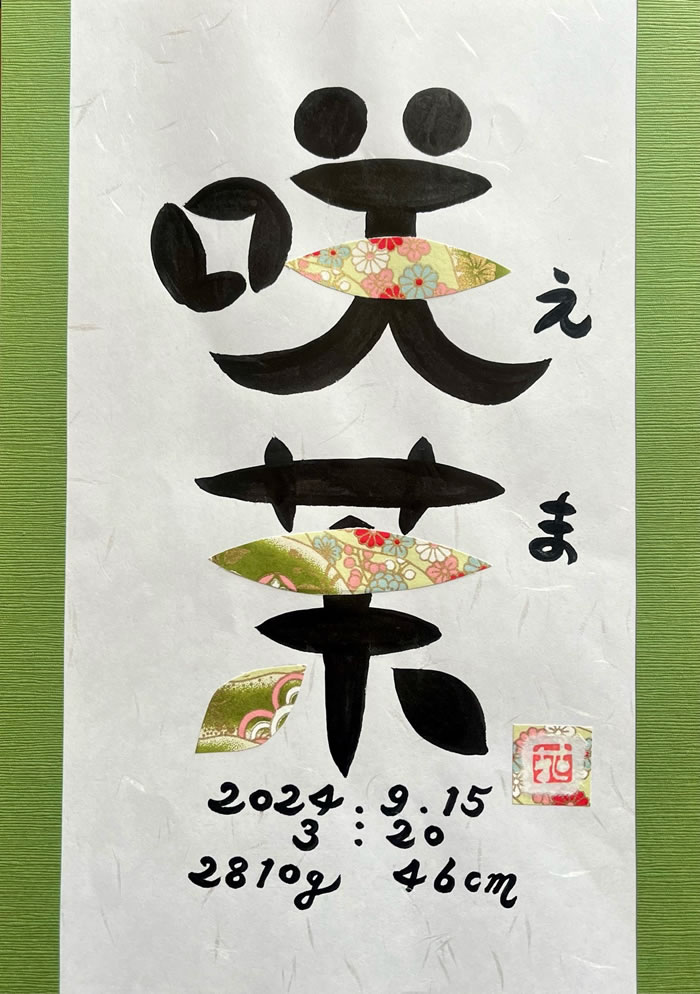 咲茉
えま
2024.9.15
3:20
2810g 46cm